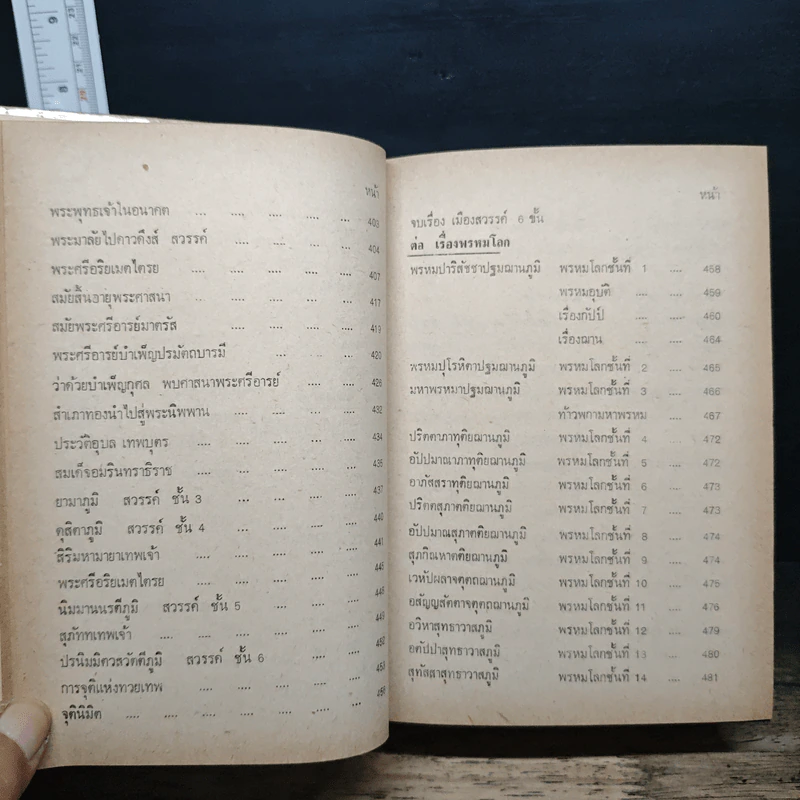 9
8
หน้า
พระพุทธเจ้าในอนาคต ... .... .... .... 403
พระมาลัยไปดาวดึงส์ สวรรค์ .... .... .... 404
พระศรีอริยเมตไตรย .... .... .... .... 407
สมัยสิ้นอายุพระศาสนา .... .... .... 417
สมัยพระศรีอารย์มาตรัส .... .... .... 419
พระศรีอารย์บำเพ็ญปรมัตถบารมี ... .... 420
ว่าด้วยบำเพ็ญกุศล พบศาสนาพระศรีอารย์ .... .... 426
สำเภาทองนำไปสู่พระนิพพาน .... .... .... 432
ประวัติอุบล เทพบุตร .... .... .... .... 434
สมเด็จอมรินทราธิราช .... .... .... .... 435
ยามาภูมิ สวรรค์ ชั้น 3 ... .... .... 437
ดุสิตาภูมิ สวรรค์ ชั้น 4 .... .... .... 440
สิริมหามายาเทพเจ้า .... .... .... .... 441
พระศรีอริยเมตไตรย .... .... .... ....
นิมมานนรตีภูมิ สวรรค์ ชั้น 5 .... ....
สุภัททเทพเจ้า .... .... .... .... .... 449
ปรนิมมิตวสวัตตีภูมิ สวรรค์ ชั้น 6 .... ....
การจุติแห่งทวยเทพ .... .... .... ....
จุตินิมิต .... .... .... .... ....
หน้า
จบเรื่อง เมืองสวรรค์ 6 ชั้น
ต่อ เรื่องพรหมโลก
พรหมปาริสัชชาปฐมฌานภูมิ พรหมโลกชั้นที่ 1 .... 458
พรหมอุบัติ .... 459
เรื่องกัปป์ .... 460
เรื่องฌาน .... 464
พรหมปุโรหิตาปฐมฌานภูมิ พรหมโลกชั้นที่ 2 .... 465
มหาพรหมาปฐมฌานภูมิ พรหมโลกชั้นที่ 3 .... 466
ท้าวพกามหาพรหม .... 467
ปริตตาภาทุติยฌานภูมิ พรหมโลกชั้นที่ 4 .... 472
อัปปมาณาภาทุติยฌานภูมิ พรหมโลกชั้นที่ 5 .... 472
อาภัสสราทุติยฌานภูมิ พรหมโลกชั้นที่ 6 .... 473
ปริตตสุภาตติยฌานภูมิ พรหมโลกชั้นที่ 7 .... 473
อัปปมาณสุภาตติยฌานภูมิ พรหมโลกชั้นที่ 8 .... 474
สุภกิณหาตติยฌานภูมิ พรหมโลกชั้นที่ 9 .... 474
เวหัปผลาจตุตถฌานภูมิ พรหมโลกชั้นที่ 10 .... 475
อสัญญสัตตาจตุตถฌานภูมิ พรหมโลกชั้นที่ 11 .... 476
อวิหาสุทธาวาสภูมิ พรหมโลกชั้นที่ 12 .... 479
อตัปปาสุทธาวาสภูมิ พรหมโลกชั้นที่ 13 .... 480
สุทัสสาสุทธาวาสภูมิ พรหมโลกชั้นที่ 14 .... 481